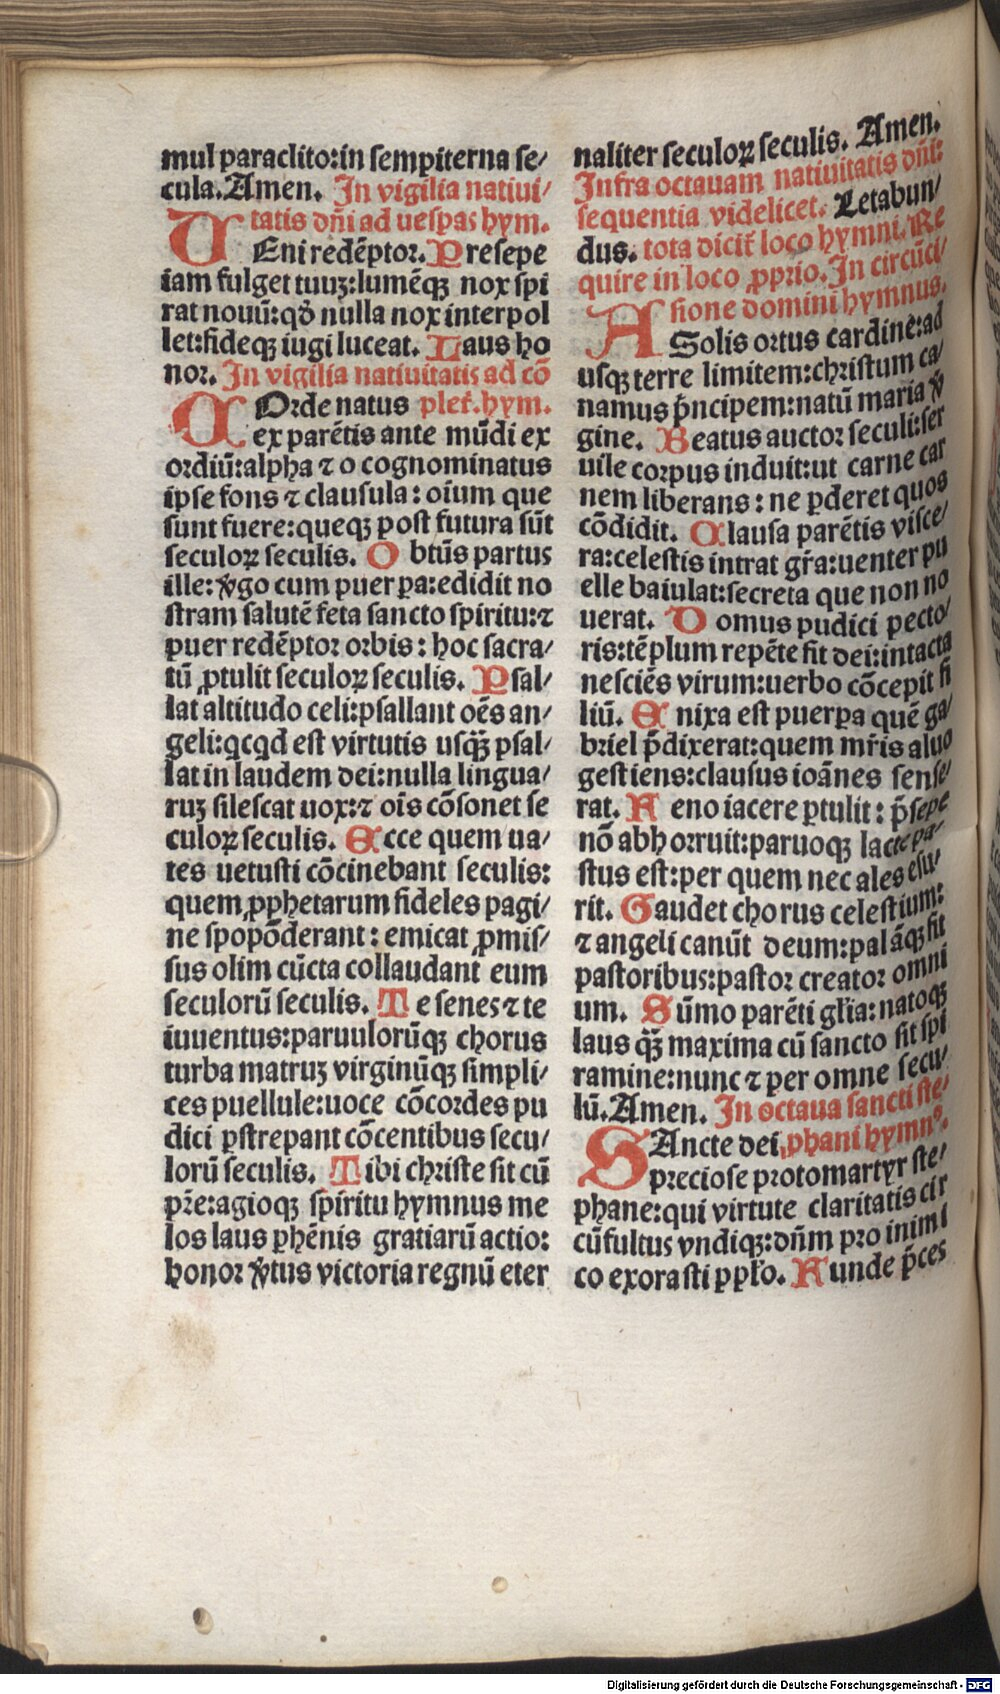 mul paraclito:in sempiterna se/
cula.Amen. In vigilia natiui/
tatis dn̄i ad uesp̄as hym.
VEni redēptor. Presepe
iam fulget tuuꝫ:lumēqꝫ nox spi
rat nouū:qḋ nulla nox interpol
let:fideqꝫ iugi luceat. Laus ho
nor. In vigilia natiuitatis ad cō
COrde natus plet̄.hym.
ex parētis ante mūdi ex
ordiū:alpha ⁊ o cognominatus
ipse fons ⁊ clausula: oīum que
sunt fuere:queqꝫ post futura sūt
seculoꝝ seculis. O btūs partus
ille: v̄go cum puerpa:edidit no
stram salutē feta sancto spiritu:⁊
puer redēptor orbis: hoc sacra/
tū ꝓtulit seculoꝝ seculis. Psal/
lat altitudo celi:psallant oēs an/
geli:qcqd est virtutis usqꝫ̄ psal/
lat in laudem dei:nulla lingua/
ruꝫ silescat uox:⁊ oīs cōsonet se
culoꝝ seculis. Ecce quem ua/
tes uetusti cōcinebant seculis:
quem ꝓphetarum fideles pagi/
ne spopōderant: emicat ꝓmis/
sus olim cūcta collaudant eum
seculorū seculis. Te senes ⁊ te
iuuentus:paruulorūqꝫ chorus
turba matruꝫ virginūqꝫ simpli/
ces puellule:uoce cōcordes pu
dici ꝑstrepant cōcentibus secu/
lorū seculis. Tibi christe sit cū
pr̄e:agioqꝫ spiritu hymnus me
los laus phēnis gratiarū actio:
honor v̄tus victoria regnū eter
naliter seculoꝝ seculis. Amen.
Infra octauam natiuitatis dn̄i:
sequentia videlicet. Letabun/
dus. tota dicit̄ loco hymni. Re
quire in loco ꝓprio. In circūci/
sione domini hymnus.
A Solis ortus cardine:ad
usqꝫ terre limitem:christum ca/
namus p̄ncipem:natū maria v̄
gine. Beatus auctor seculi:ser
uile corpus induit:ut carne car
nem liberans: ne ꝑderet quos
cōdidit. Clausa parētis visce/
ra:celestis intrat gr̄a:uenter pu
elle baiulat:secreta que non no
uerat. D omus pudici pecto/
ris:tēplum repēte fit dei:intacta
nesciēs virum:uerbo cōcepit fi
liū. E nixa est puerpa quē ga/
briel p̄dixerat:quem mr̄is aluo
gestiens:clausus ioānes sense/
rat. F eno iacere ꝑtulit: p̄sepe
nō abhorruit:paruoqꝫ lacte pa/
stus est:per quem nec ales esu/
rit. Gaudet chorus celestium:
⁊ angeli canūt deum:palāqꝫ fit
pastoribus:pastor creator omni
um. Sūmo parēti gl̄ia:natoqꝫ
laus qꝫ̄ maxima cū sancto sit spi
ramine:nunc ⁊ per omne secu/
lū.Amen. In octaua sancti ste/
SAncte dei, phani hymnꝰ.
preciose protomartyr ste/
phane:qui virtute claritatis cir
cūfultus vndiqꝫ:dn̄m pro inimi
co exorasti ppl̄o. Funde p̄ces
Digitalisierung gefördert durch die Deutsche Forschungsgemeinschaft - DFG